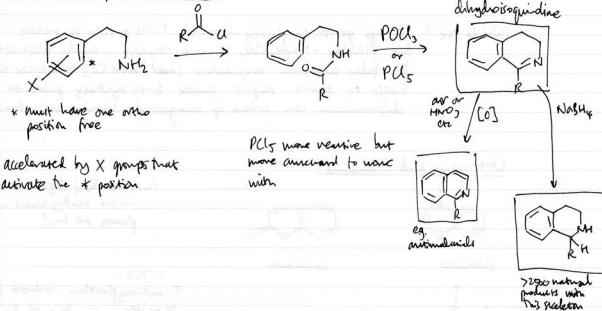 dihydroisoquinoline
O
R
Cl
X
*
NH₂
NH
O
R
POCl₃
or
PCl₅
N
R
* must have one ortho
position free
accelerated by X groups that
activate the * position
PCl₅ more reactive but
more awkward to work
with
air or
HNO₃
etc
[O]
NaBH₄
N
R
eg.
antimalarials
NH
R
H
>2500 natural
products with
this skeleton